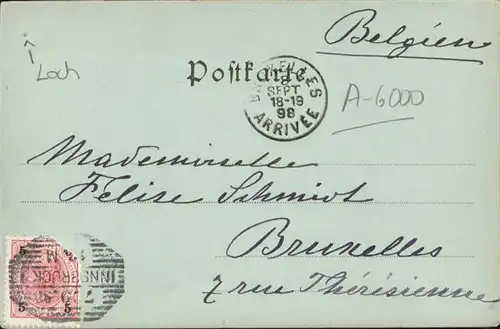 Belgien
Loch
Postkarte
BRUXELLES
8
SEPT
18-19
98
ARRIVÉE
A-6000
Mademoiselle
Felise Schmidt
Bruxelles
7 rue Thérésienne
INNSBRUCK
5 5